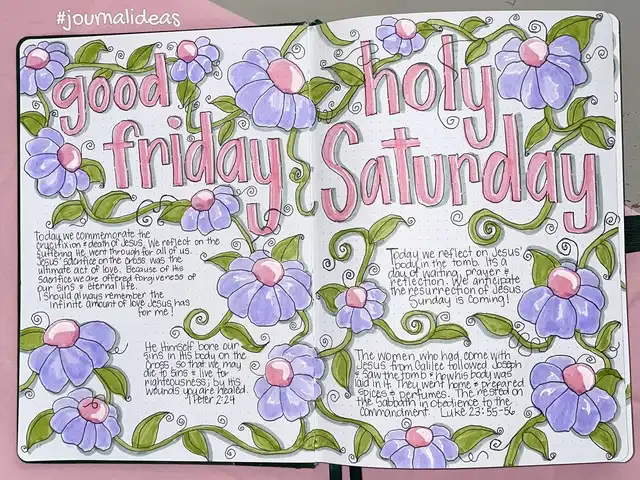 #journalideas
good
friday
Today we commemorate the
crucifixion & death of Jesus. We reflect on the
suffering He went through for all of us.
Jesus' sacrifice on the cross was the
ultimate act of love. Because of His
sacrifice we are offered forgiveness of
our sins & eternal life.
I should always remember the
infinite amount of love Jesus has
for me!
He Himself bore our
sins in His body on the
cross, so that we may
die to sins & live to
righteousness; by His
wounds you are healed.
1 Peter 2:24
holy
Saturday
Today we reflect on Jesus'
body in the tomb. It's a
day of waiting, prayer &
reflection. We anticipate
the resurrection of Jesus.
Sunday is coming!
The women, who had come with
Jesus from Galilee followed Joseph
& saw the tomb & how his body was
laid in it. They went home & prepared
spices & perfumes. The rested on
the Sabbath in obedience to the
commandment. Luke 23:55-56